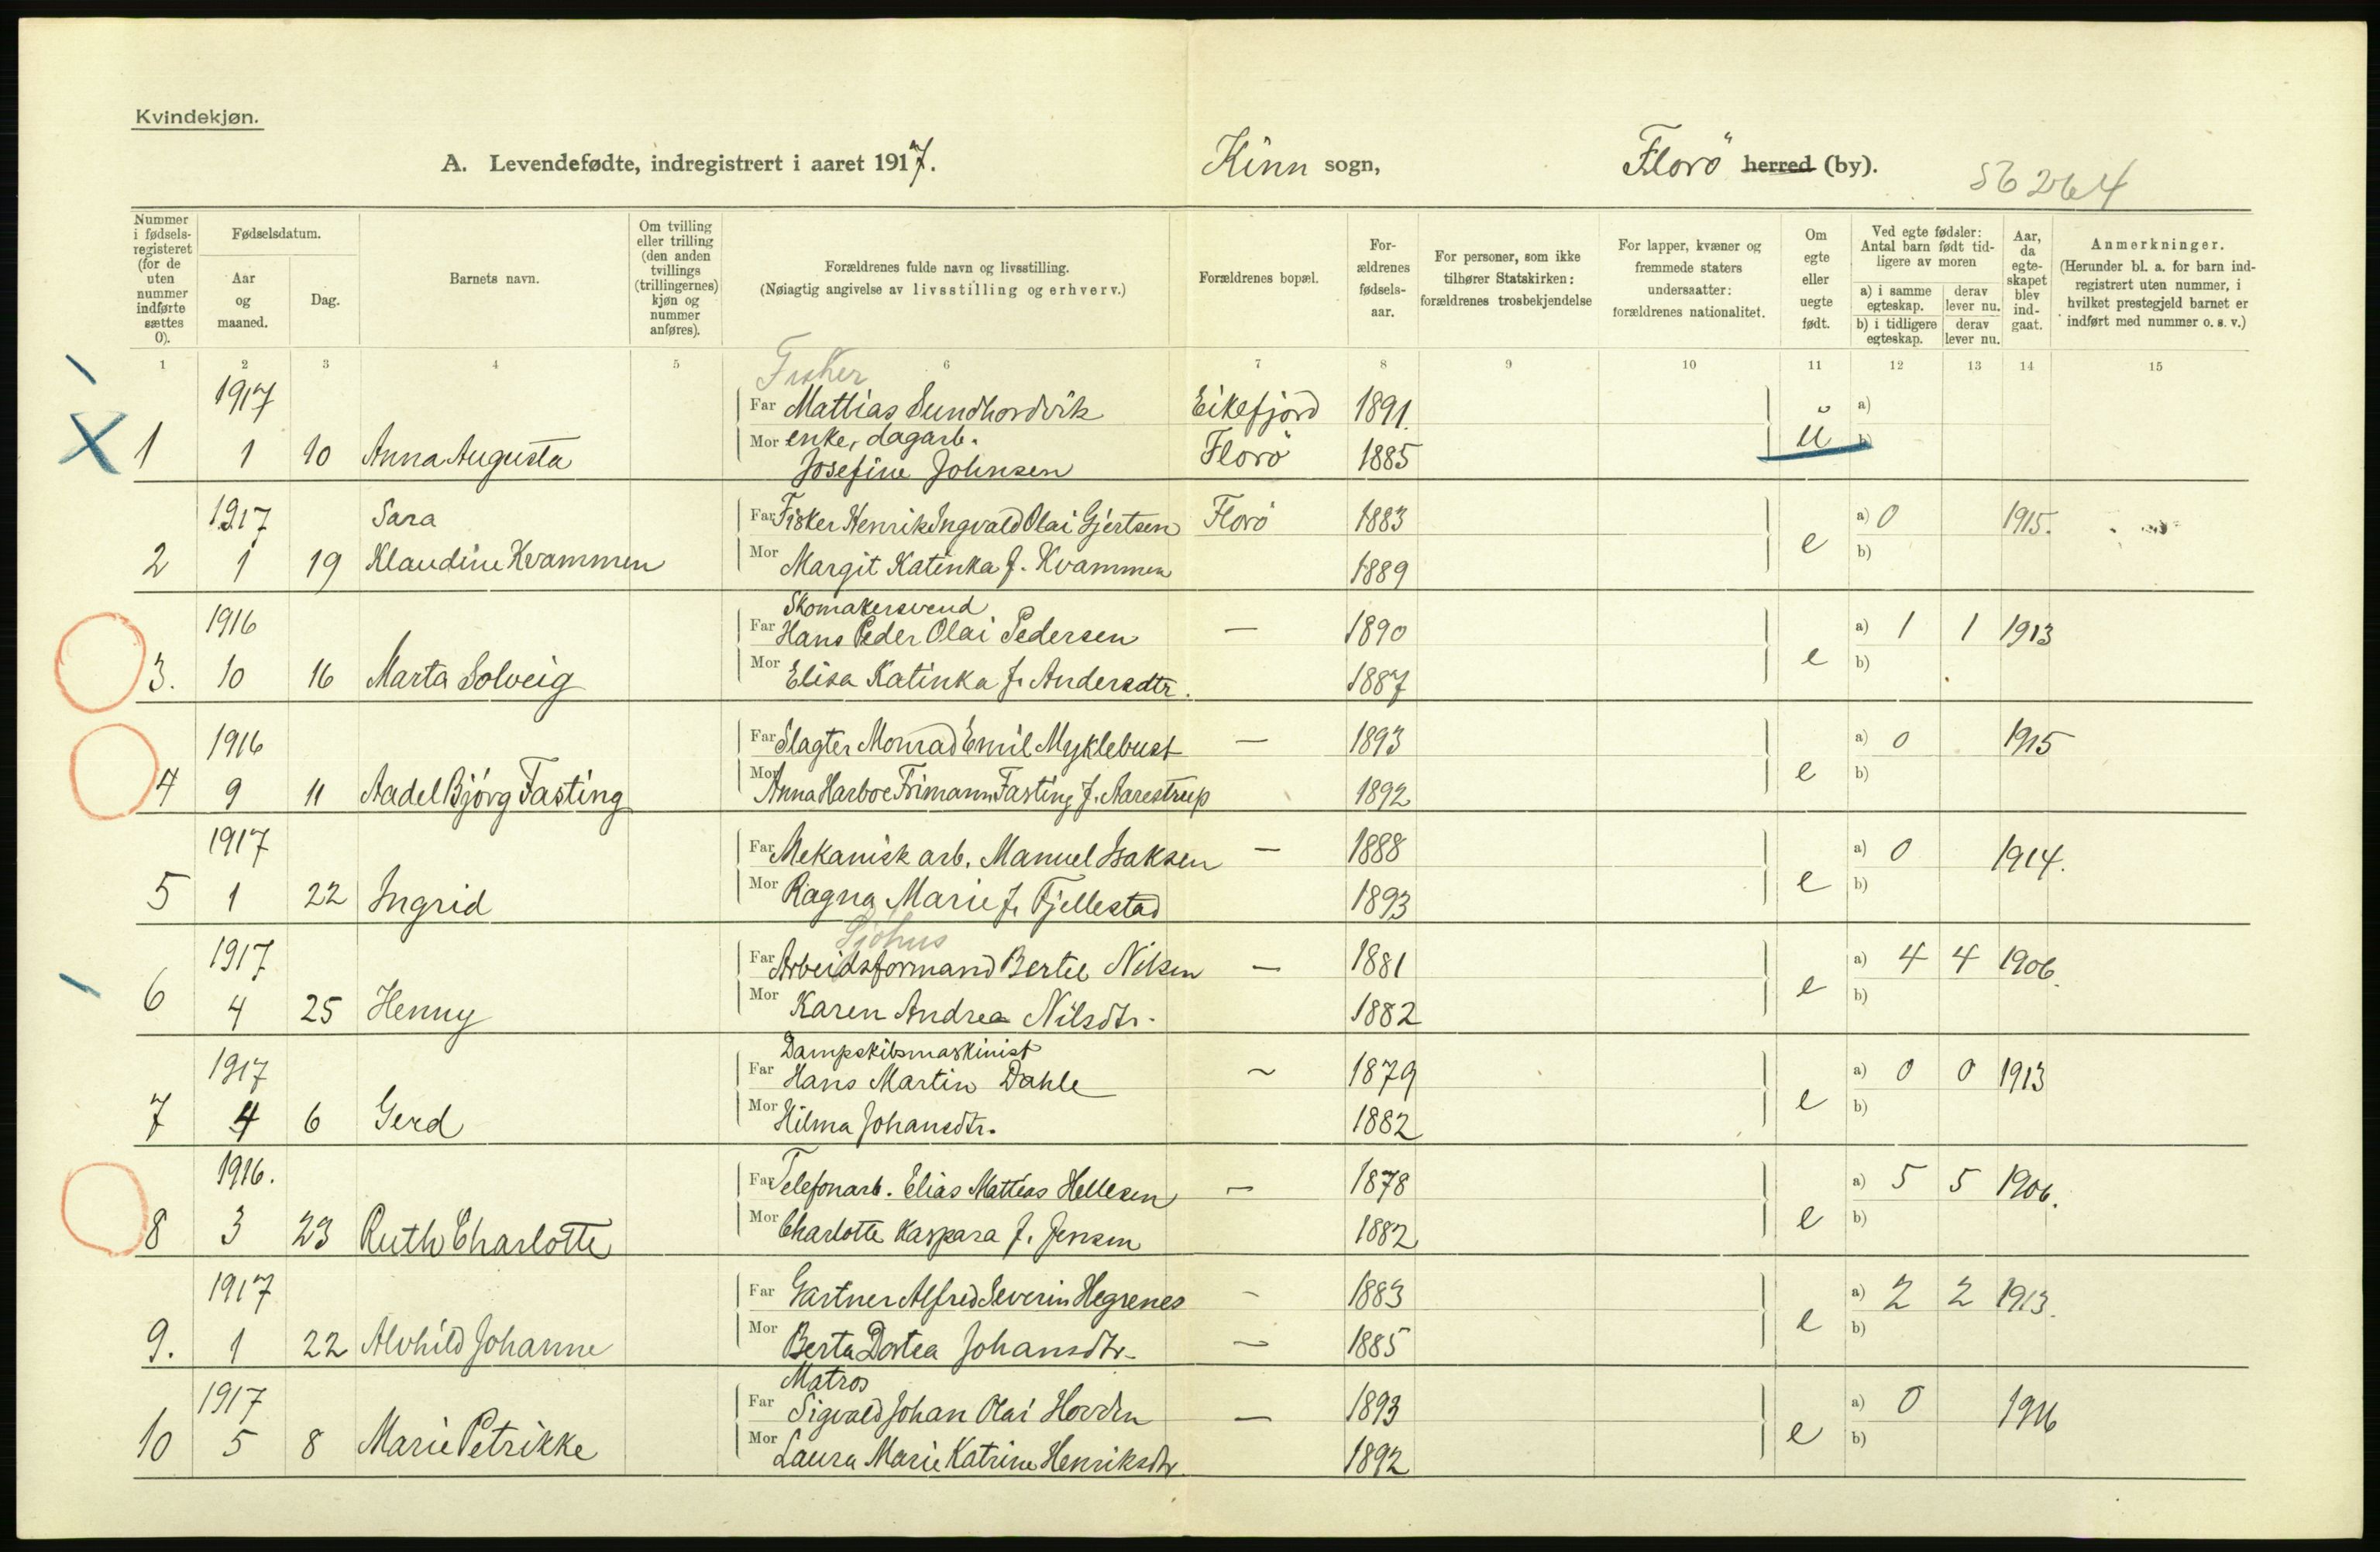 Kvindekjøn.
A. Levendefødte, indregistrert i aaret 1917. Kinn sogn, Florö herred (by).
56264
Nummer i fødsels-registeret (for de uten nummer indførte sættes 0).
Fødselsdatum.
Aar og maaned.
Dag.
Barnets navn.
Om tvilling eller trilling (den anden tvillings (trillingernes) kjøn og nummer anføres).
Forældrenes fulde navn og livsstilling.
(Nøiagtig angivelse av livsstilling og erhverv.)
Forældrenes bopæl.
For-ældrenes fødsels-aar.
For personer, som ikke tilhører Statskirken: forældrenes trosbekjendelse
For lapper, kvæner og fremmede staters undersaatter: forældrenes nationalitet.
Om egte eller uegte født.
Ved egte fødsler: Antal barn født tid-ligere av moren
a) i samme egteskap. derav lever nu.
b) i tidligere egteskap. derav lever nu.
Aar, da egte-skapet blev ind-gaat.
Anmerkninger.
(Herunder bl. a. for barn ind-registrert uten nummer, i hvilket prestegjeld barnet er indført med nummer o. s. v.)
1 2 3 4 5 6 7 8 9 10 11 12 13 14 15
Fisker
1917 Far Mattias Sundhordvik Eikefjord 1891. a)
Mor enke, dagarb.
1 1 10 Anna Augusta Josefine Johnsen Florö 1885 u b)
1917 Sara Far Fisker Henrik Ingvald Olai Gjertsen Florö 1883 a) 0 1915.
2 1 19 Klaudine Kvammen Mor Margit Katinka f. Kvammen 1889 e b)
Skomakersvend
1916 Far Hans Peder Olai Pedersen — 1890 a) 1 1 1913
3. 10 16 Marta Solveig Mor Elisa Katinka f. Andersdtr. 1887 e b)
1916 Far Slagter Monrad Emil Myklebust — 1893 a) 0 1915
4 9 11 Aadel Bjórg Fasting Mor Anna Harboe Frimann Fasting f. Aarestrup 1892 e b)
1917 Far Mekanisk arb. Manuel Isaksen — 1888 a) 0 1914.
5 1 22 Ingrid Mor Ragna Marie f. Fjellestad 1893 e b)
Sjöhus
1917 Far Arbeidsformand Bertel Nilsen — 1881 a) 4 4 1906.
6 4 25 Henny Mor Karen Andrea Nilsdtr. 1882 e b)
Dampskibsmaskinist
1917 Far Hans Martin Dahle ~ 1879 a) 0 0 1913
7 4 6 Gerd Mor Hilma Johansdtr. 1882 e b)
1916. Far Telefonarb. Elias Mattias Hellesen — 1878 a) 5 5 1906.
8 3 23 Ruth Charlotte Mor Charlotte Kaspara f. Jensen 1882 e b)
1917 Far Gartner Alfred Severin Hegrenes - 1883 a) 2 2 1913.
9. 1 22 Alvhild Johanne Mor Berta Dortea Johansdtr. — 1885 e b)
Matros
1917 Far Sigvald Johan Olai Hovden — 1893 a) 0 1916
10 5 8 Marie Petrikke Mor Laura Marie Katrine Henriksdtr. 1892 e b)